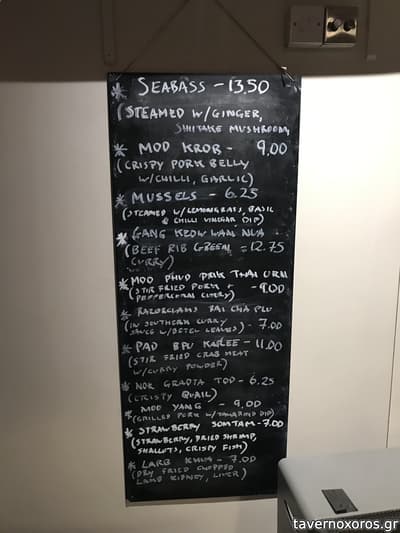 * SEABASS - 13.50
(STEAMED W/GINGER,
SHITAKE MUSHROOM,
* MOD KROB - 9.00
(CRISPY PORK BELLY
W/CHILLI, GARLIC)
* MUSSELS - 6.25
(STEAMED W/LEMONGRASS, BASIL
& CHILLI VINEGAR DIP)
* GANG KEOW WAN NUA -
(BEEF RIB GREEN = 12.75
CURRY)
* MOO PHUD PRIK
(STIR FRIED PORK + - 9.00
PEPPERCORN CURRY)
* RAZORCLAMS BAI CHA PLU
(IN SOUTHERN CURRY
SAUCE W/BETEL LEAVES) - 7.00
* PAD BPU KARLEE - 11.00
(STIR FRIED CRAB MEAT
W/CURRY POWDER)
* NOK GRADTA TOD - 6.25
(CRISPY QUAIL)
MOO YANG - 9.00
(GRILLED PORK W/TAMARIND DIP)
* STRAWBERRY SOMTAM - 7.00
(STRAWBERRY, DRIED SHRIMP,
SHALLOTS, CRISPY FISH)
* LARB - 7.00
(DRY FRIED CHOPPED
LAMB KIDNEY, LIVER)
tavernoxoros.gr